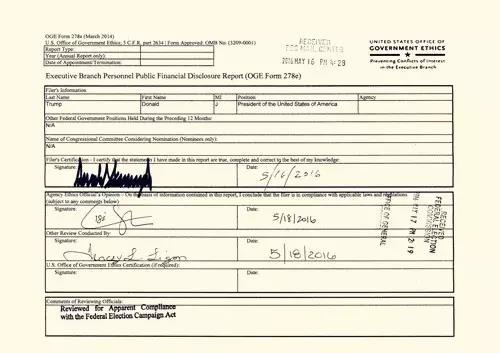 OGE Form 278e (March 2014)
U.S. Office of Government Ethics; 5 C.F.R. part 2634 | Form Approved: OMB No. (3209-0001)
Report Type:
Year (Annual Report only):
Date of Appointment/Termination:
RECEIVED
FEC MAIL CENTER
2016 MAY 16 PM 4:28
UNITED STATES OFFICE OF
GOVERNMENT ETHICS
Preventing Conflicts of Interest
in the Executive Branch
Executive Branch Personnel Public Financial Disclosure Report (OGE Form 278e)
Filer's Information
Last Name First Name MI Position Agency
Trump Donald J President of the United States of America
Other Federal Government Positions Held During the Preceding 12 Months:
N/A
Name of Congressional Committee Considering Nomination (Nominees only):
N/A
Filer's Certification - I certify that the statements I have made in this report are true, complete and correct to the best of my knowledge:
Signature: Date:
5/16/2016
Agency Ethics Official's Opinion - On the basis of information contained in this report, I conclude that the filer is in compliance with applicable laws and regulations
(subject to any comments below)
Signature: Date:
5/18/2016
Other Review Conducted By:
Signature: Date:
5/18/2016
U.S. Office of Government Ethics Certification (if required):
Signature: Date:
Comments of Reviewing Officials:
Reviewed for Apparent Compliance
with the Federal Election Campaign Act
RECEIVED
FEDERAL ELECTION
COMMISSION
17 PM 2:19
OFFICE OF GENERAL